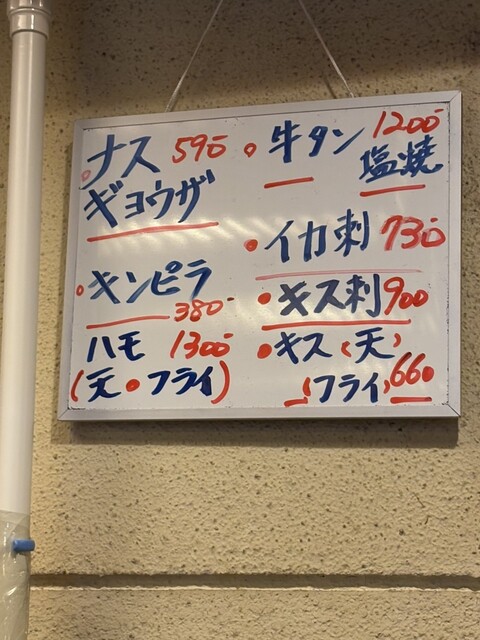 ナス 590
ギョウザ
キンピラ
380-
ハモ 1300
(天・フライ)
牛タン 1200
塩焼
イカ刺 730
キス刺 900
キス(天)
(フライ) 660